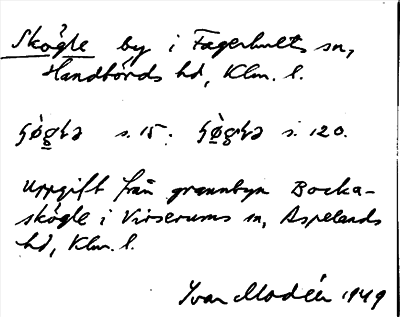 Skögle by i Fagerhults sn,
Handbörds hd, Klm. l.
s. 15. s. 120.
Uppgift från grannbyn Bocka-
skögle i Virserums sn, Aspelands
hd, Klm. l.
Ivar Modéer 1949